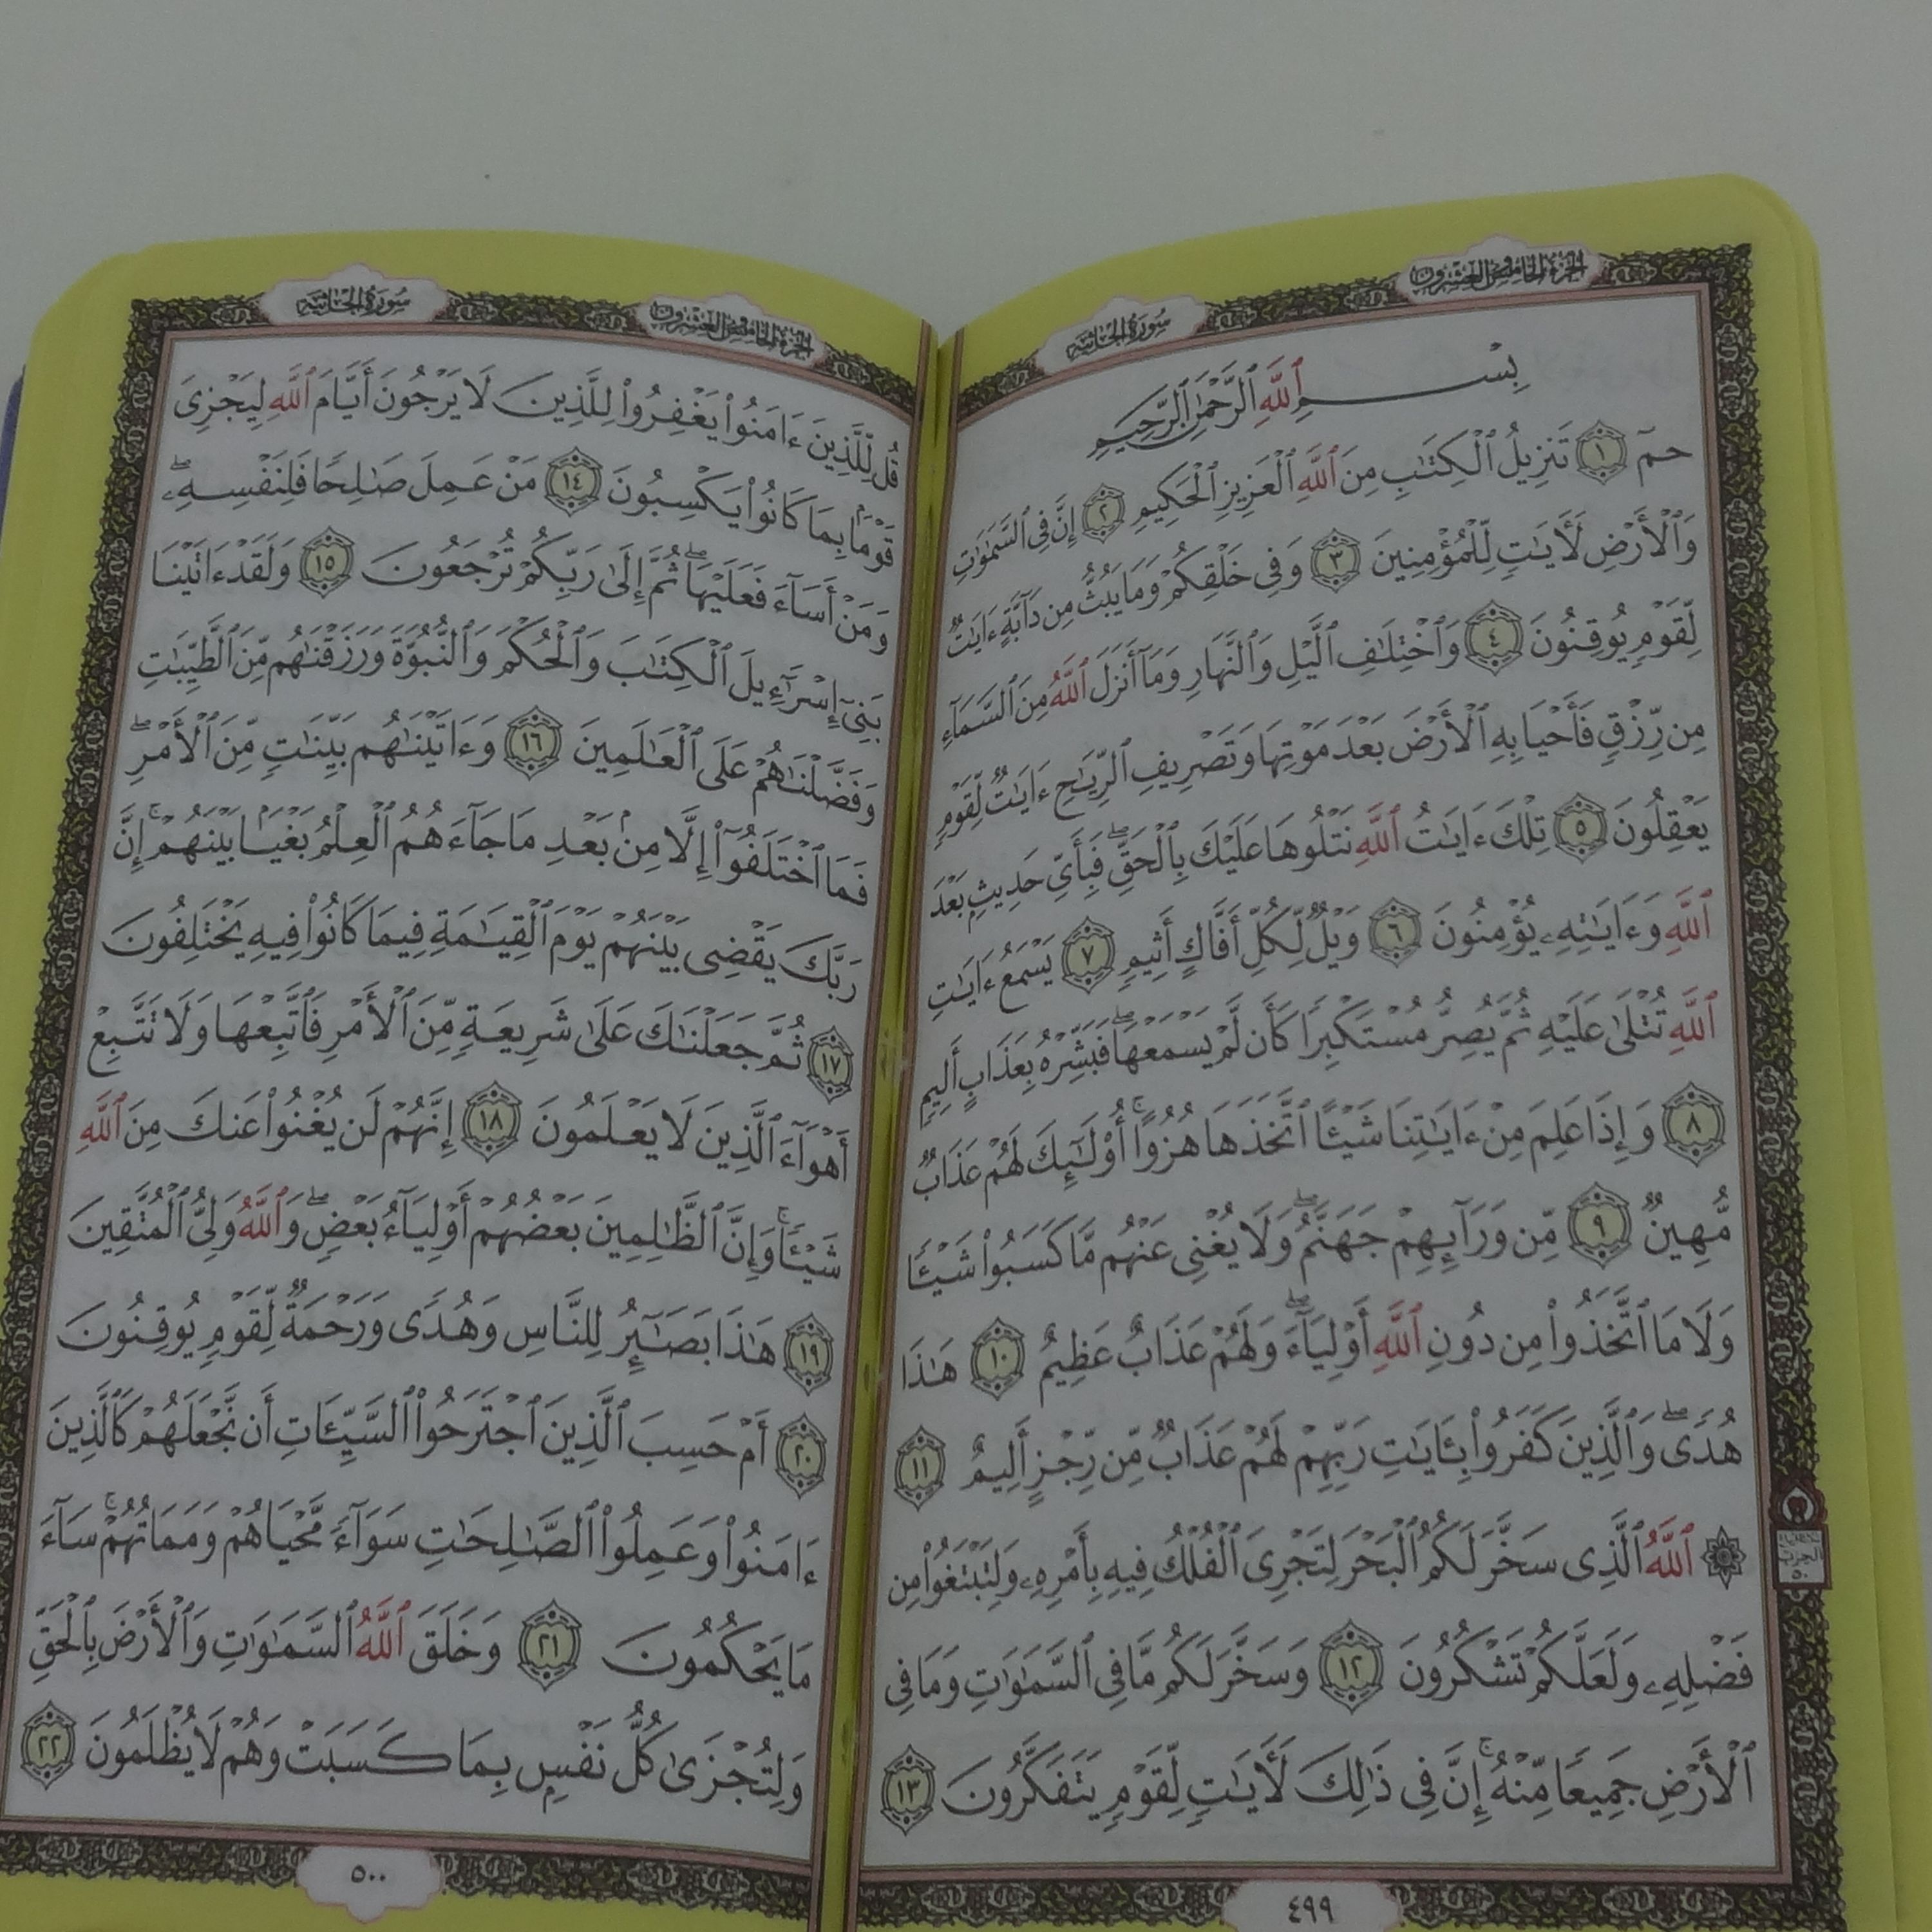 الجزء الخامس والعشرون
سورة الجاثية
بِسْمِ ٱللَّهِ ٱلرَّحْمَٰنِ ٱلرَّحِيمِ
حمٓ ١ تَنزِيلُ ٱلْكِتَٰبِ مِنَ ٱللَّهِ ٱلْعَزِيزِ ٱلْحَكِيمِ ٢ إِنَّ فِى ٱلسَّمَٰوَٰتِ
وَٱلْأَرْضِ لَءَايَٰتٍ لِّلْمُؤْمِنِينَ ٣ وَفِى خَلْقِكُمْ وَمَا يَبُثُّ مِن دَآبَّةٍ ءَايَٰتٌ
لِّقَوْمٍ يُوقِنُونَ ٤ وَٱخْتِلَٰفِ ٱلَّيْلِ وَٱلنَّهَارِ وَمَآ أَنزَلَ ٱللَّهُ مِنَ ٱلسَّمَآءِ
مِن رِّزْقٍ فَأَحْيَا بِهِ ٱلْأَرْضَ بَعْدَ مَوْتِهَا وَتَصْرِيفِ ٱلرِّيَٰحِ ءَايَٰتٌ لِّقَوْمٍ
يَعْقِلُونَ ٥ تِلْكَ ءَايَٰتُ ٱللَّهِ نَتْلُوهَا عَلَيْكَ بِٱلْحَقِّ ۖ فَبِأَىِّ حَدِيثٍۭ بَعْدَ
ٱللَّهِ وَءَايَٰتِهِۦ يُؤْمِنُونَ ٦ وَيْلٌ لِّكُلِّ أَفَّاكٍ أَثِيمٍ ٧ يَسْمَعُ ءَايَٰتِ
ٱللَّهِ تُتْلَىٰ عَلَيْهِ ثُمَّ يُصِرُّ مُسْتَكْبِرًا كَأَن لَّمْ يَسْمَعْهَا ۖ فَبَشِّرْهُ بِعَذَابٍ أَلِيمٍ
٨ وَإِذَا عَلِمَ مِنْ ءَايَٰتِنَا شَيْـًٔا ٱتَّخَذَهَا هُزُوًا ۚ أُو۟لَٰٓئِكَ لَهُمْ عَذَابٌ
مُّهِينٌ ٩ مِّن وَرَآئِهِمْ جَهَنَّمُ ۖ وَلَا يُغْنِى عَنْهُم مَّا كَسَبُوا۟ شَيْـًٔا
وَلَا مَا ٱتَّخَذُوا۟ مِن دُونِ ٱللَّهِ أَوْلِيَآءَ ۖ وَلَهُمْ عَذَابٌ عَظِيمٌ ١٠ هَٰذَا
هُدًى ۖ وَٱلَّذِينَ كَفَرُوا۟ بِـَٔايَٰتِ رَبِّهِمْ لَهُمْ عَذَابٌ مِّن رِّجْزٍ أَلِيمٌ ١١
۞ ٱللَّهُ ٱلَّذِى سَخَّرَ لَكُمُ ٱلْبَحْرَ لِتَجْرِىَ ٱلْفُلْكُ فِيهِ بِأَمْرِهِۦ وَلِتَبْتَغُوا۟ مِن
فَضْلِهِۦ وَلَعَلَّكُمْ تَشْكُرُونَ ١٢ وَسَخَّرَ لَكُم مَّا فِى ٱلسَّمَٰوَٰتِ وَمَا فِى
ٱلْأَرْضِ جَمِيعًا مِّنْهُ ۚ إِنَّ فِى ذَٰلِكَ لَءَايَٰتٍ لِّقَوْمٍ يَتَفَكَّرُونَ ١٣
٤٩٩
الجزء الخامس والعشرون
سورة الجاثية
قُل لِّلَّذِينَ ءَامَنُوا۟ يَغْفِرُوا۟ لِلَّذِينَ لَا يَرْجُونَ أَيَّامَ ٱللَّهِ لِيَجْزِىَ
قَوْمًۢا بِمَا كَانُوا۟ يَكْسِبُونَ ١٤ مَنْ عَمِلَ صَٰلِحًا فَلِنَفْسِهِۦ ۖ
وَمَنْ أَسَآءَ فَعَلَيْهَا ۖ ثُمَّ إِلَىٰ رَبِّكُمْ تُرْجَعُونَ ١٥ وَلَقَدْ ءَاتَيْنَا
بَنِىٓ إِسْرَٰٓءِيلَ ٱلْكِتَٰبَ وَٱلْحُكْمَ وَٱلنُّبُوَّةَ وَرَزَقْنَٰهُم مِّنَ ٱلطَّيِّبَٰتِ
وَفَضَّلْنَٰهُمْ عَلَى ٱلْعَٰلَمِينَ ١٦ وَءَاتَيْنَٰهُم بَيِّنَٰتٍ مِّنَ ٱلْأَمْرِ ۖ
فَمَا ٱخْتَلَفُوٓا۟ إِلَّا مِنۢ بَعْدِ مَا جَآءَهُمُ ٱلْعِلْمُ بَغْيًۢا بَيْنَهُمْ ۚ إِنَّ
رَبَّكَ يَقْضِى بَيْنَهُمْ يَوْمَ ٱلْقِيَٰمَةِ فِيمَا كَانُوا۟ فِيهِ يَخْتَلِفُونَ
١٧ ثُمَّ جَعَلْنَٰكَ عَلَىٰ شَرِيعَةٍ مِّنَ ٱلْأَمْرِ فَٱتَّبِعْهَا وَلَا تَتَّبِعْ
أَهْوَآءَ ٱلَّذِينَ لَا يَعْلَمُونَ ١٨ إِنَّهُمْ لَن يُغْنُوا۟ عَنكَ مِنَ ٱللَّهِ
شَيْـًٔا ۚ وَإِنَّ ٱلظَّٰلِمِينَ بَعْضُهُمْ أَوْلِيَآءُ بَعْضٍ ۖ وَٱللَّهُ وَلِىُّ ٱلْمُتَّقِينَ
١٩ هَٰذَا بَصَٰٓئِرُ لِلنَّاسِ وَهُدًى وَرَحْمَةٌ لِّقَوْمٍ يُوقِنُونَ
٢٠ أَمْ حَسِبَ ٱلَّذِينَ ٱجْتَرَحُوا۟ ٱلسَّيِّـَٔاتِ أَن نَّجْعَلَهُمْ كَٱلَّذِينَ
ءَامَنُوا۟ وَعَمِلُوا۟ ٱلصَّٰلِحَٰتِ سَوَآءً مَّحْيَاهُمْ وَمَمَاتُهُمْ ۚ سَآءَ
مَا يَحْكُمُونَ ٢١ وَخَلَقَ ٱللَّهُ ٱلسَّمَٰوَٰتِ وَٱلْأَرْضَ بِٱلْحَقِّ
وَلِتُجْزَىٰ كُلُّ نَفْسٍۭ بِمَا كَسَبَتْ وَهُمْ لَا يُظْلَمُونَ ٢٢
٥٠٠